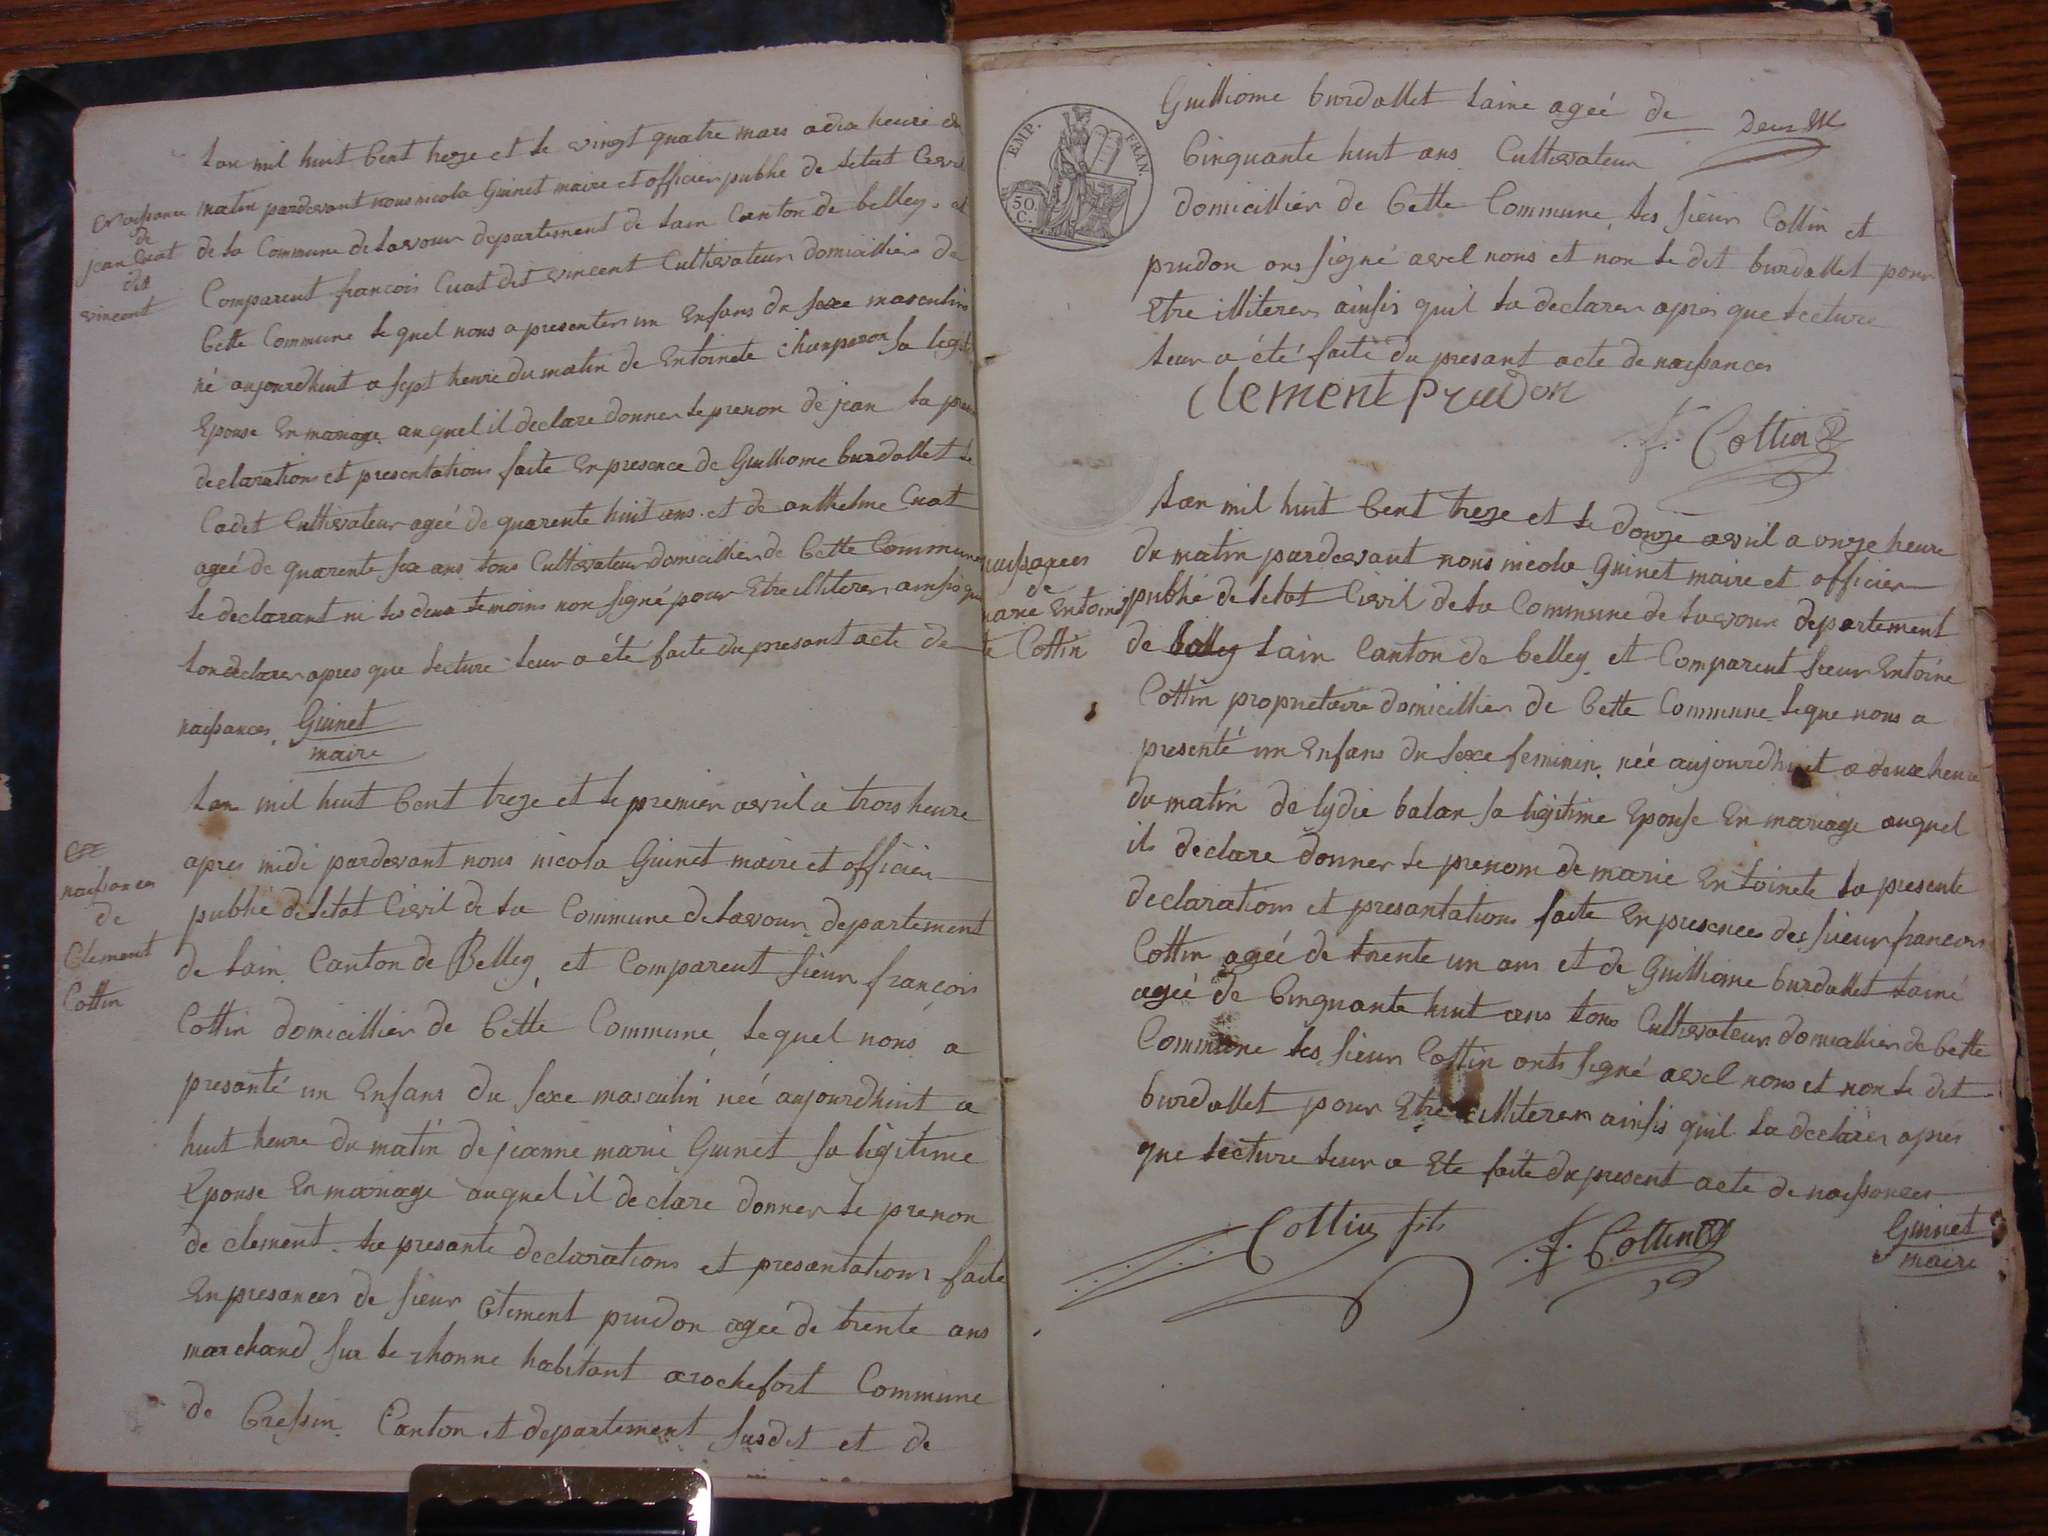 naissance
de
jean Cuat
dit
vincent
Lan mil huit Cent treze et le vingt quatre mars a dix heure du
matin pardevant nous nicola Guinet maire et officier publié de letat Civil
de la Commune de lavour departement de lain Canton de belley. et
Comparent francois Cuat dit vincent Cultivateur domicillier de
Cette Commune le quel nous a presenter un Enfans du sexe masculin
né aujourdhuit a sept heure du matin de Entoinete Champaron sa legit
Epouse En mariage auquel il declare donner le prenon de jean la pres
declarations et presentations faite En presence de Guilliome burdallet le
Cadet Cultivateur ageé de quarente huit ans. et de anthelme Cuat
ageé de quarente six ans tous Cultivateur domicillier de Cette Commune
le declarant ni les deux temoins non signé pour Etre illiterer ainsis que
lon declarer apres que lecture leur a été faite du presant acte de
naissances. Guinet
maire
naissances
de
Clement
Cottin
Lan mil huit Cent treze et le premier avril a trois heure
apres midi pardevant nous nicola Guinet maire et officier
publié de letat Civil de la Commune de lavour departement
de lain Canton de Belley, et Comparent sieur françois
Cottin domicillier de Cette Commune, lequel nous a
presanté un Enfans du sexe masculin née aujourdhuit a
huit heure du matin de jeanne marie Guinet sa légitime
Epouse En mariage auquel il declare donner le prenon
de clement. la presante declarations et presentations faite
En presances de sieur Clement prudon ageé de trente ans
marchand sur le rhonne habitant a rochefort Commune
de Cressin Canton et departement susdit et de
EMP. FRAN.
50.
C.
Guilliome burdallet laine ageé de
Cinquante huit ans Cultivateur
domicillier de Cette Commune, les sieur Cottin et
prudon ons signé avel nous et non le dit burdallet pour
Etre illiterer ainsis quil la declarer apres que lecture
leur a été faite du presant acte de naissances
Clement Prudon
f. Cottin
naissances
de
marie Entoine
te Cottin
Lan mil huit Cent treze et le douze avril a onze heure
du matin pardevant nous nicola Guinet maire et officier
publié de letat Civil de la Commune de lavour departement
de belley lain Canton de belley et Comparent sieur Entoine
Cottin proprietaire domicillier de Cette Commune leque nous a
presenté un Enfans du sexe feminin. née aujourdhuit a deux heure
du matin de lydie balan sa légitime Epouse En mariage auquel
ils declare donner le prenom de marie Entoinete la presente
declarations et presantations faite En presences des sieur francois
Cottin ageé de trente un ans et de Guilliome burdallet lainé
ageé de Cinquante huit ans tous Cultivateur domicillier de Cette
Commune les sieur Cottin onts signé avel nous et non le dit
burdallet pour Etre illiterer ainsis quil la declarer apres
que lecture leur a Ete faite du present acte de naissances
Cottin fils f. Cottin Guinet
maire